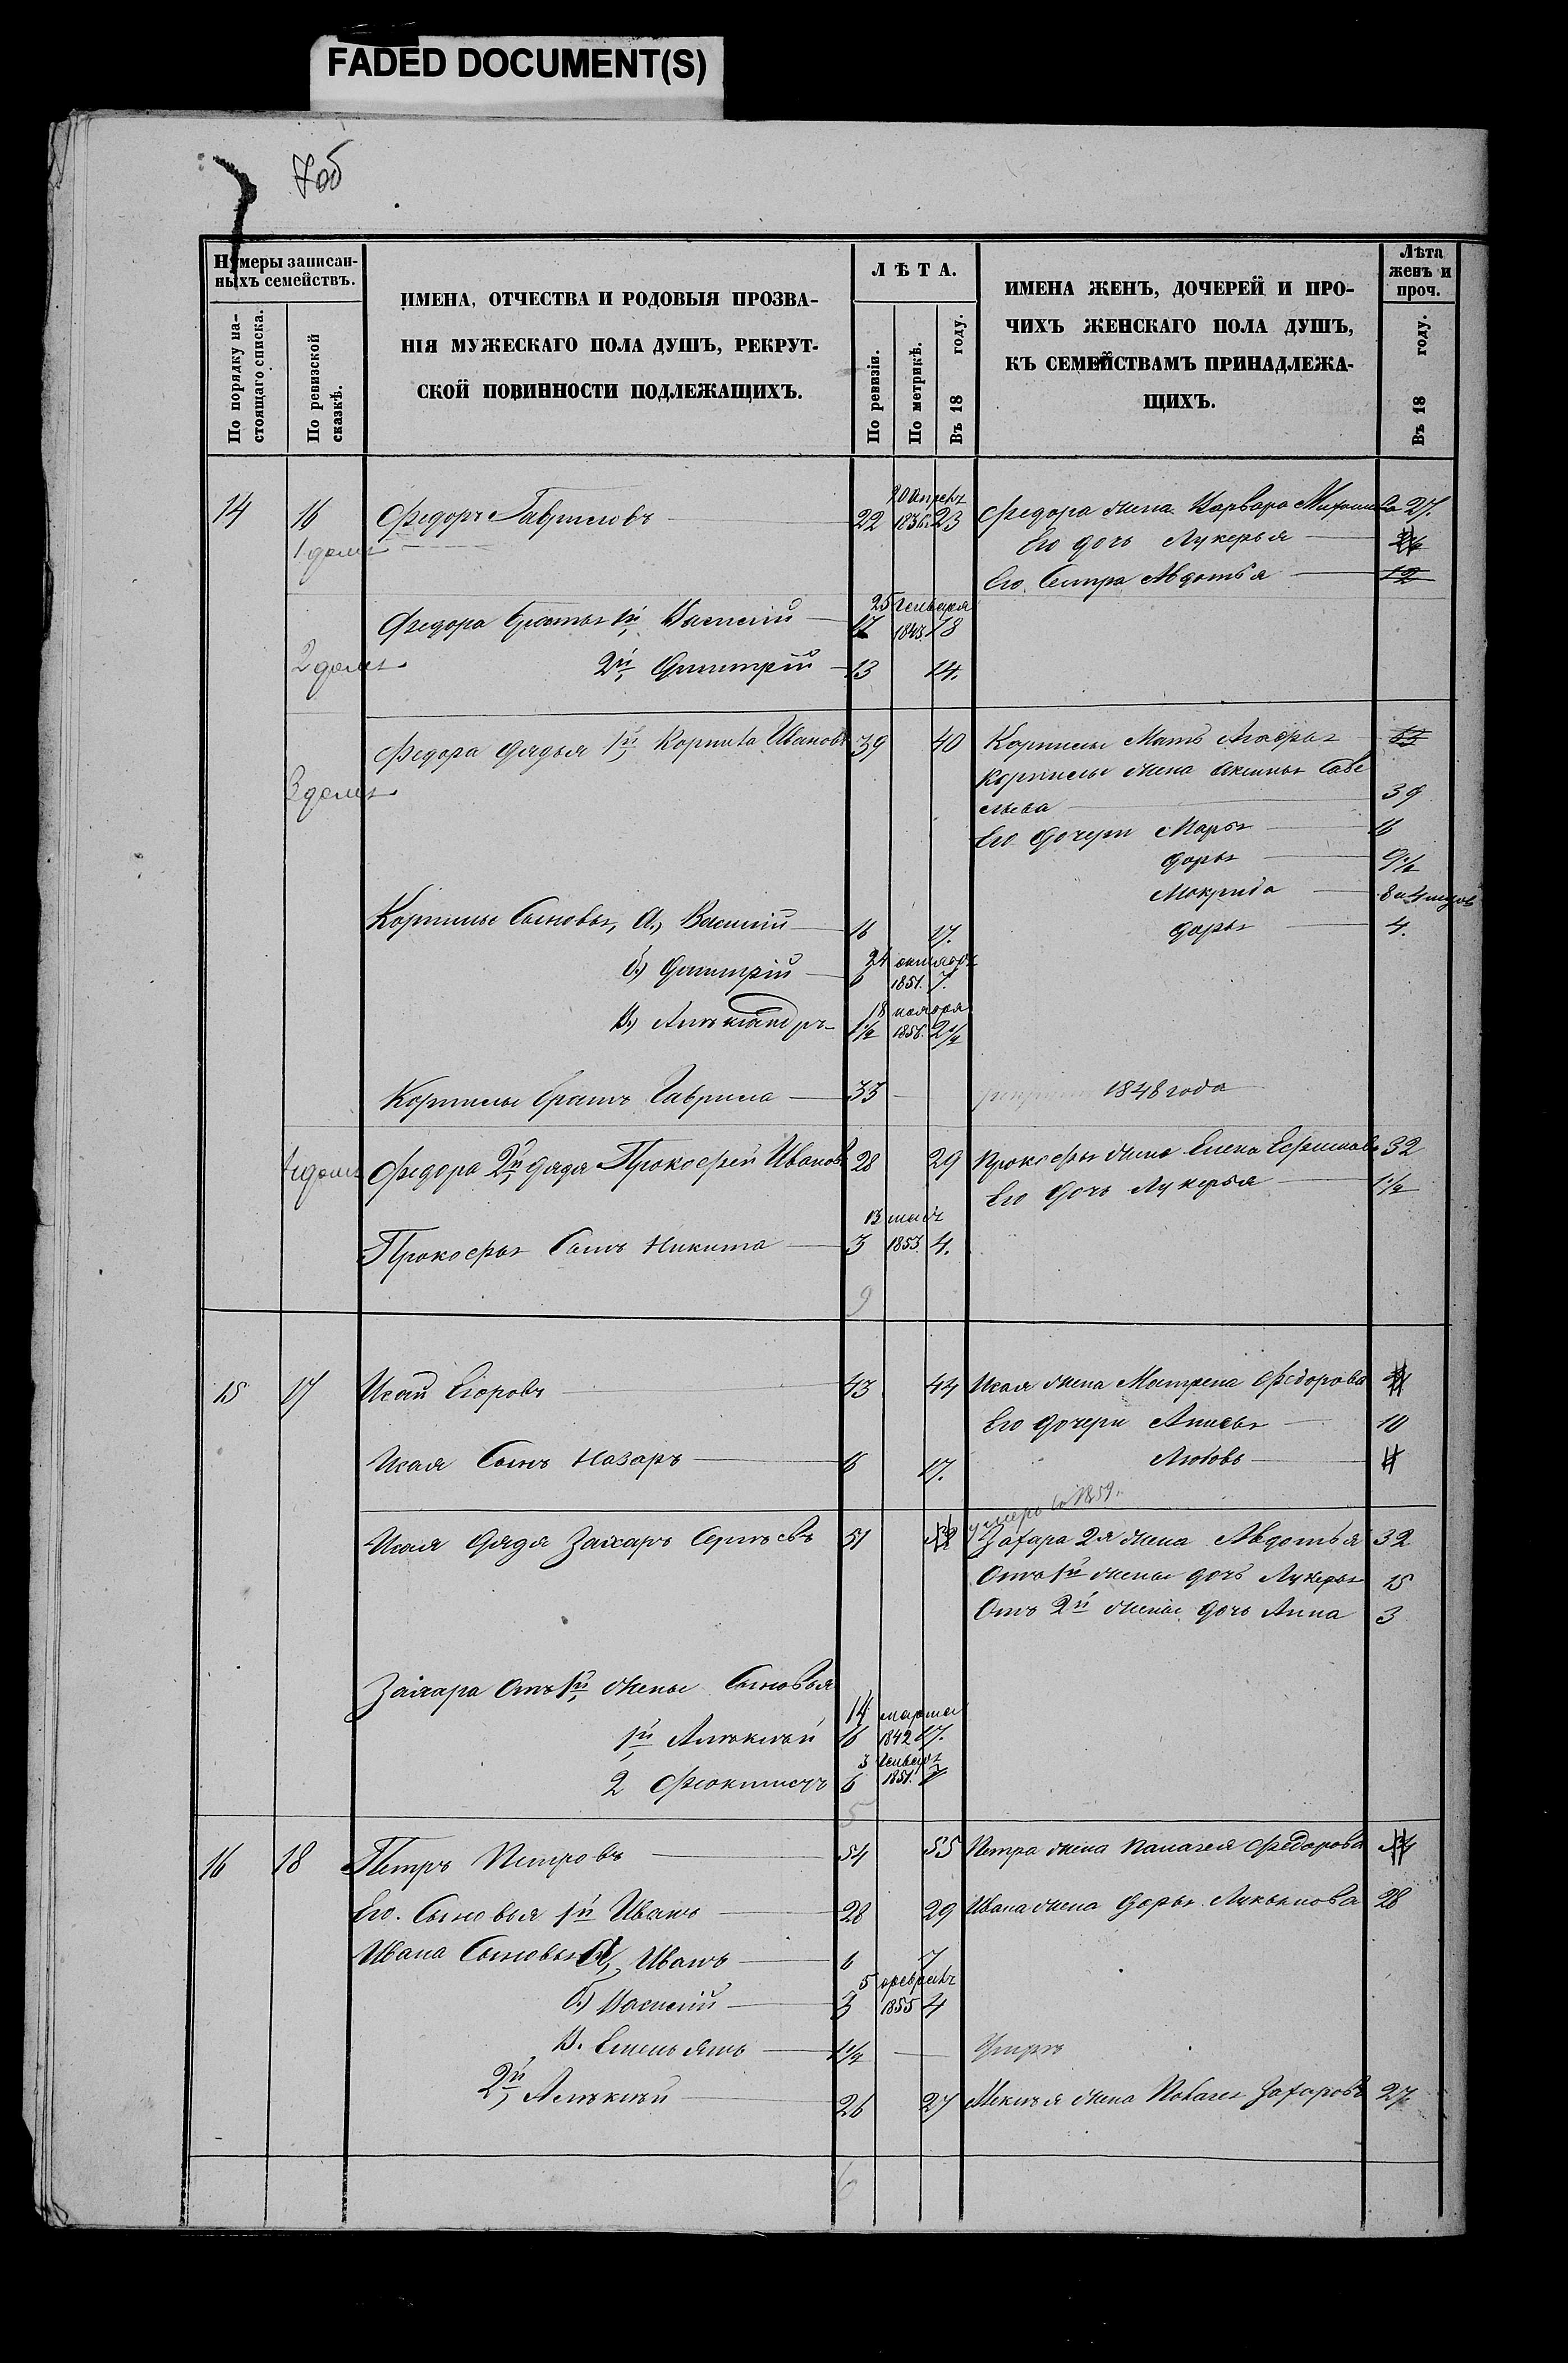 FADED DOCUMENT(S)
7об
Нумеры записан-
ныхъ семействъ.
По порядку на-
стоящаго списка.
По ревизской
сказкѣ.
ИМЕНА, ОТЧЕСТВА И РОДОВЫЯ ПРОЗВА-
НІЯ МУЖЕСКАГО ПОЛА ДУШЪ, РЕКРУТ-
СКОЙ ПОВИННОСТИ ПОДЛЕЖАЩИХЪ.
ЛѢТА.
По ревизіи.
По метрикѣ.
Въ 18 году.
ИМЕНА ЖЕНЪ, ДОЧЕРЕЙ И ПРО-
ЧИХЪ ЖЕНСКАГО ПОЛА ДУШЪ,
КЪ СЕМЕЙСТВАМЪ ПРИНАДЛЕЖА-
ЩИХЪ.
Лѣта
женъ и
проч.
Въ 18 году.
20 Апрель
14 16 Федоръ Гавриловъ 22 1836 23 Федора жена Варвара 27.
1 домъ
Его дочь Лукерья
Его Сестра Авдотья 12
25 Генваря
Федора братья 1й Василій 17 1843 18
2 домъ 2й Дмитрій 13 14.
Федора дядья 1й Корнила Ивановъ 39 40 Корнилы Мать
3 домъ
Корнилы жена Аксинья Саве
льева 39
Его дочери Марья 16
Дарья 9 1/2
Макрида
Корнилы Сыновья, А.) Василій 16 17. Дарья 4.
24 октября
б.) Дмитрій 6 1851. 7.
18 ноября
В.) Александръ 1 1/2 2 1/2
Корнилы братъ Гаврила 33 1848 года
4 домъ Федора 2й дядя Прокофей Ивановъ 28 29 Прокофья жена Елена 32
Его дочь Лукерья 1 1/2
13
Прокофья Сынъ Никита 3 1853 4.
9
15 17 Исай Егоровъ 43 44 Исая жена Матрена Федорова
Его дочери Анисья 10
Исая Сынъ Назаръ 16 17. Любовь
умеръ въ 1859.
Исая Дядя Захаръ Сергѣевъ 51 52 Захара 2я жена Авдотья 32
Отъ 1й жены дочь Лукерья 15
Отъ 2й жены дочь Анна 3
Захара Отъ 1й жены Сыновья
14 марта
1й Алексѣй 16 1842 17.
3 Генваря
2 Феоктистъ 6 1851. 7
5
16 18 Петръ Петровъ 54 55 Петра жена Палагея Федорова 54
Его Сыновья 1й Иванъ 28 29 Ивана жена Дарья Лукьянова 28
Ивана Сыновья А, Иванъ 6 7
5 февраль
б.) Василій 3 1855 4
В. Емельянъ 1 1/2 Умеръ
2й Алексѣй 26 27 Алексѣя жена Палагея Захарова 27
6